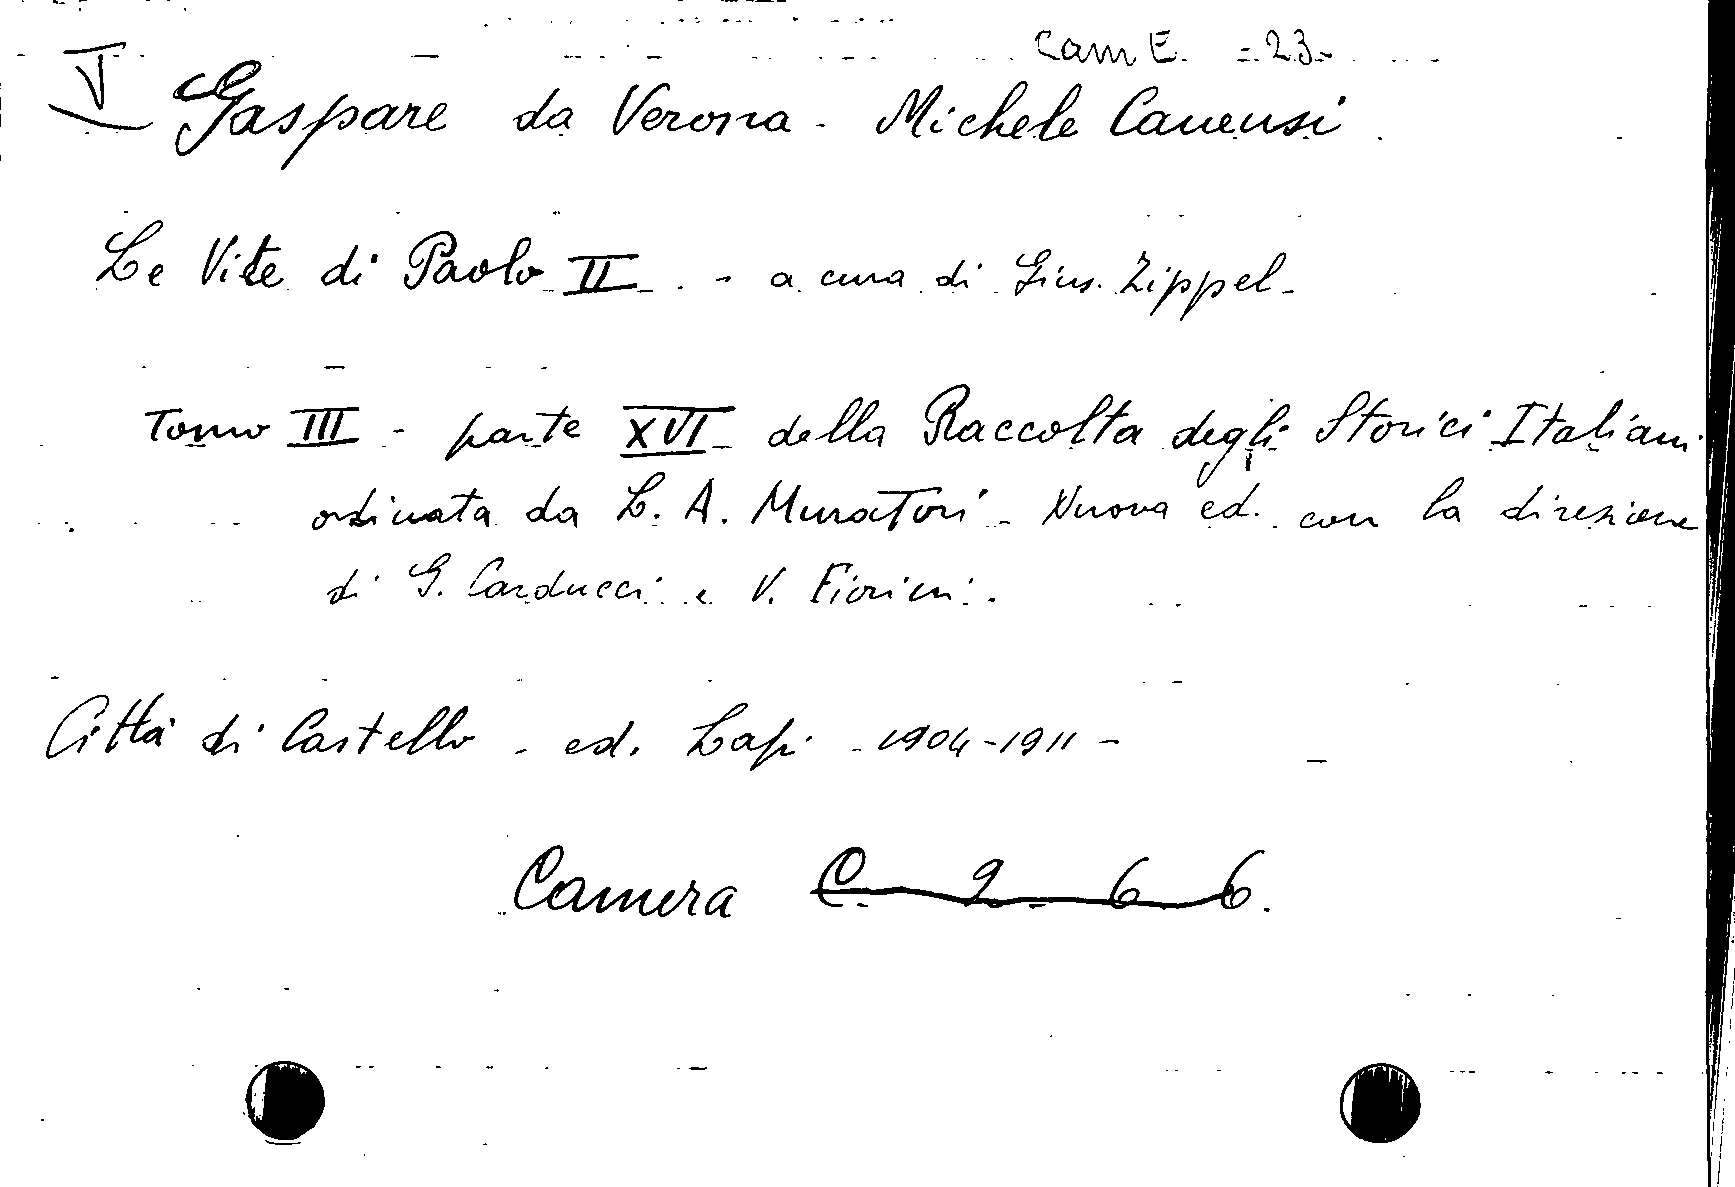 Cam E. - 23 -
V Gaspare da Verona - Michele Canensi
Le Vite di Paolo II - a cura di Gius. Zippel -
Tomo III - parte XVI della Raccolta degli Storici Italiani
ordinata da L. A. Muratori - Nuova ed. con la direzione
di G. Carducci e V. Fiorini.
Città di Castello - ed. Lapi - 1904-1911 -
Camera C. 2. 6 6.